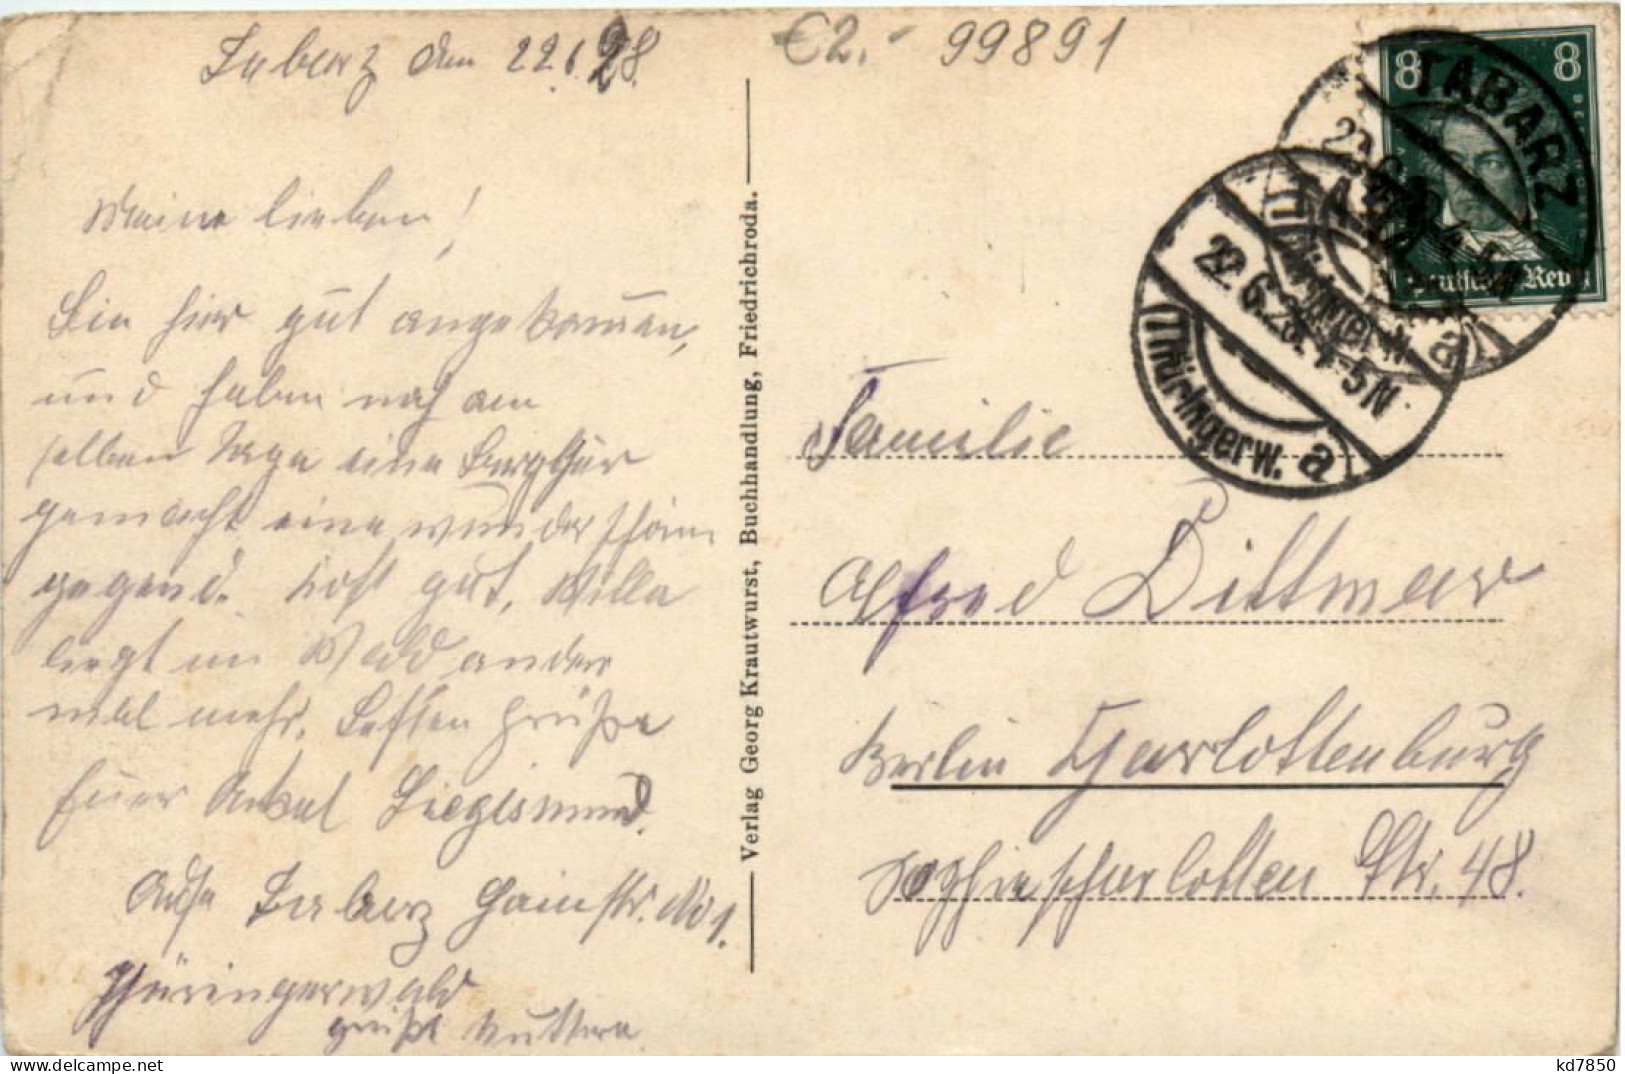 Tabarz den 22.6.28.
€2.- 99891
Meine lieben!
Bin hier gut angekommen,
und haben noch am
selben Tage eine Bergtur
gemacht eine wunderschöne
gegend. Kost gut, Willa
liegt im Wald ander
mal mehr. Besten Grüße
Euer Onkel Siegismund.
Tabarz Hainstr. No 1.
Thüringerwald
grüßt Muttern
Verlag Georg Krautwurst, Buchhandlung, Friedrichroda.
8 8
Deutsches Reich
TABARZ
22.6.28. 4-5N
(Thüringerw. a
TABARZ
22.6.28. 4-5N
(Thüringerw. a
Familie
Alfred Dittmar
Berlin Charlottenburg
Sophiescharlotten Str. 48.
kd7850